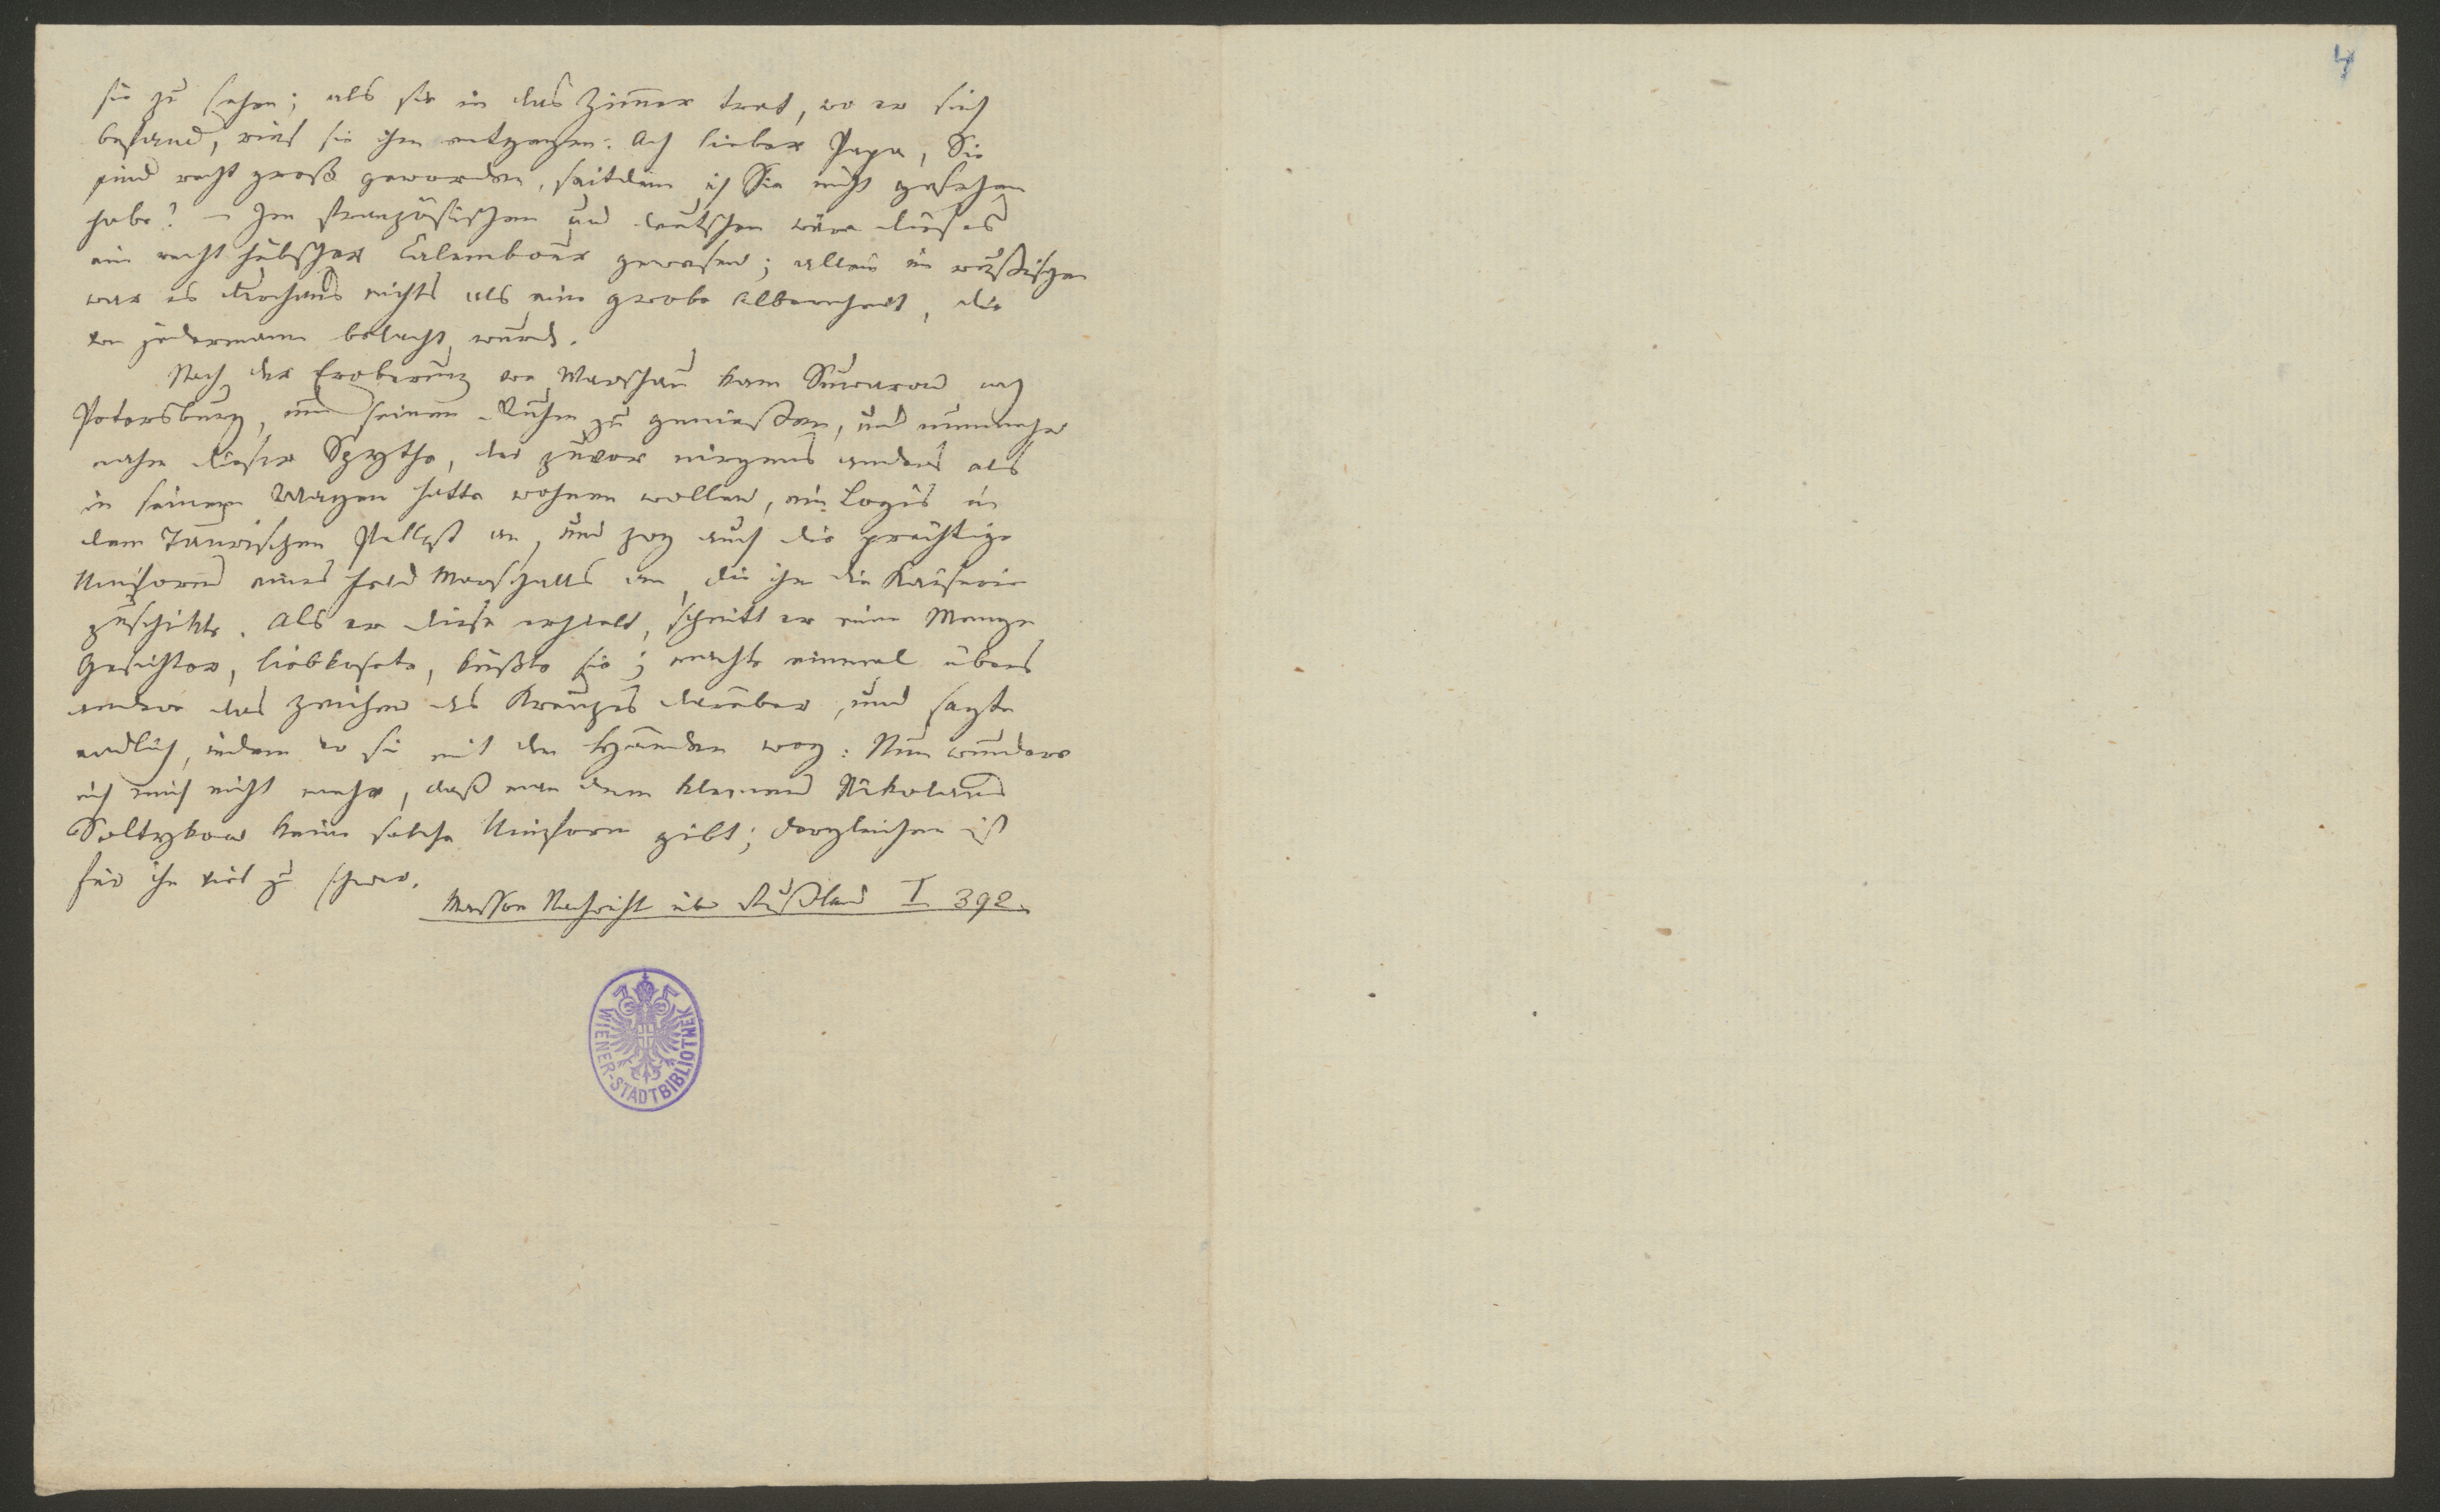 4
sie zu sehen; als sie in das Zimmer trat, wo er sich
befand, rief sie ihm entgegen: Ach lieber Papa, Sie
sind recht groß geworden, seitdem ich Sie nicht gesehen
habe! – Im französischen und deutschen wäre dieses
ein recht hübscher Calembour gewesen; allein im rußischen
war es durchaus nichts als eine grobe Albernheit, die
von jedermann belacht wurde.
Nach der Eroberung von Warschau kam Suwarow nach
Petersburg, um seinen Ruhm zu genießen, und nunmehr
nahm dieser Szythe, der zuvor nirgends anders als
in seinem Wagen hatte wohnen wollen, ein Logis in
dem Taurischen Pallast an, und zog auch die prächtige
Uniform eines Feld Marschalls an, die ihm die Kaiserin
zuschikte. Als er diese erhielt, schnitt er eine Menge
Gesichter, liebkoste, küßte sie; machte einmal übers
andere das Zeichen des Kreuzes darüber, und sagte
endlich, indem er sie mit den Händen wog: Nun wundere
ich mich nicht mehr, daß man dem kleinen Nikolaus
Soltykow keine solche Uniform gibt; dergleichen ist
für ihn viel zu schwer.
Masson Nachricht über Rußland I 392.
WIENER-STADTBIBLIOTHEK